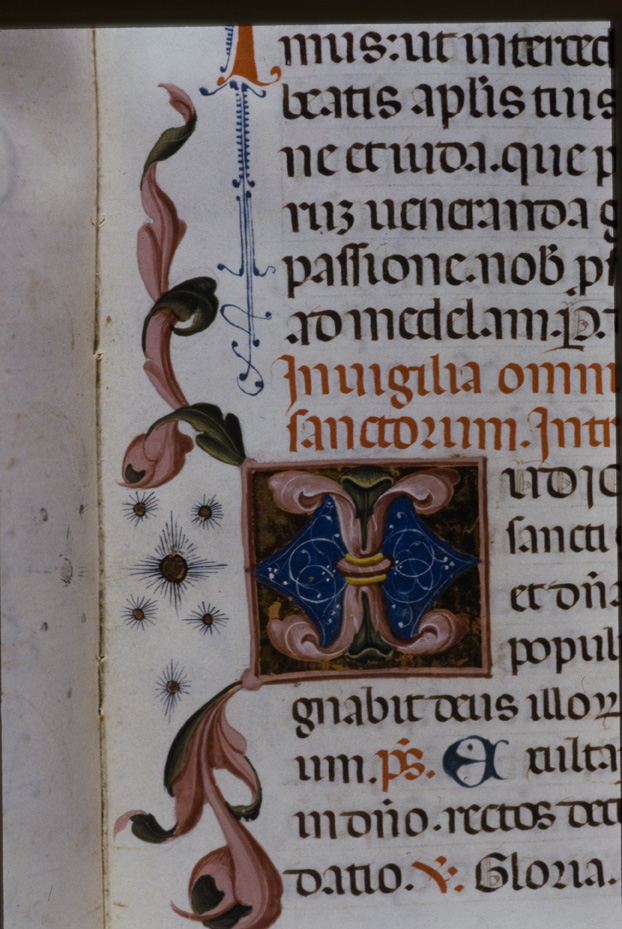 mus: ut interced
beatis aplis tuis
ne et iuda. que p
ruȝ ueneranda g
passione. nob ps
ad medelam. P. t
In uigilia omni
sanctorum. Intr
Iudic
sancti
et dñ
popul
gnabit deus illoꝝ
um. ps. Exulta
in dño. rectos dec
datio. ℣. Gloria.